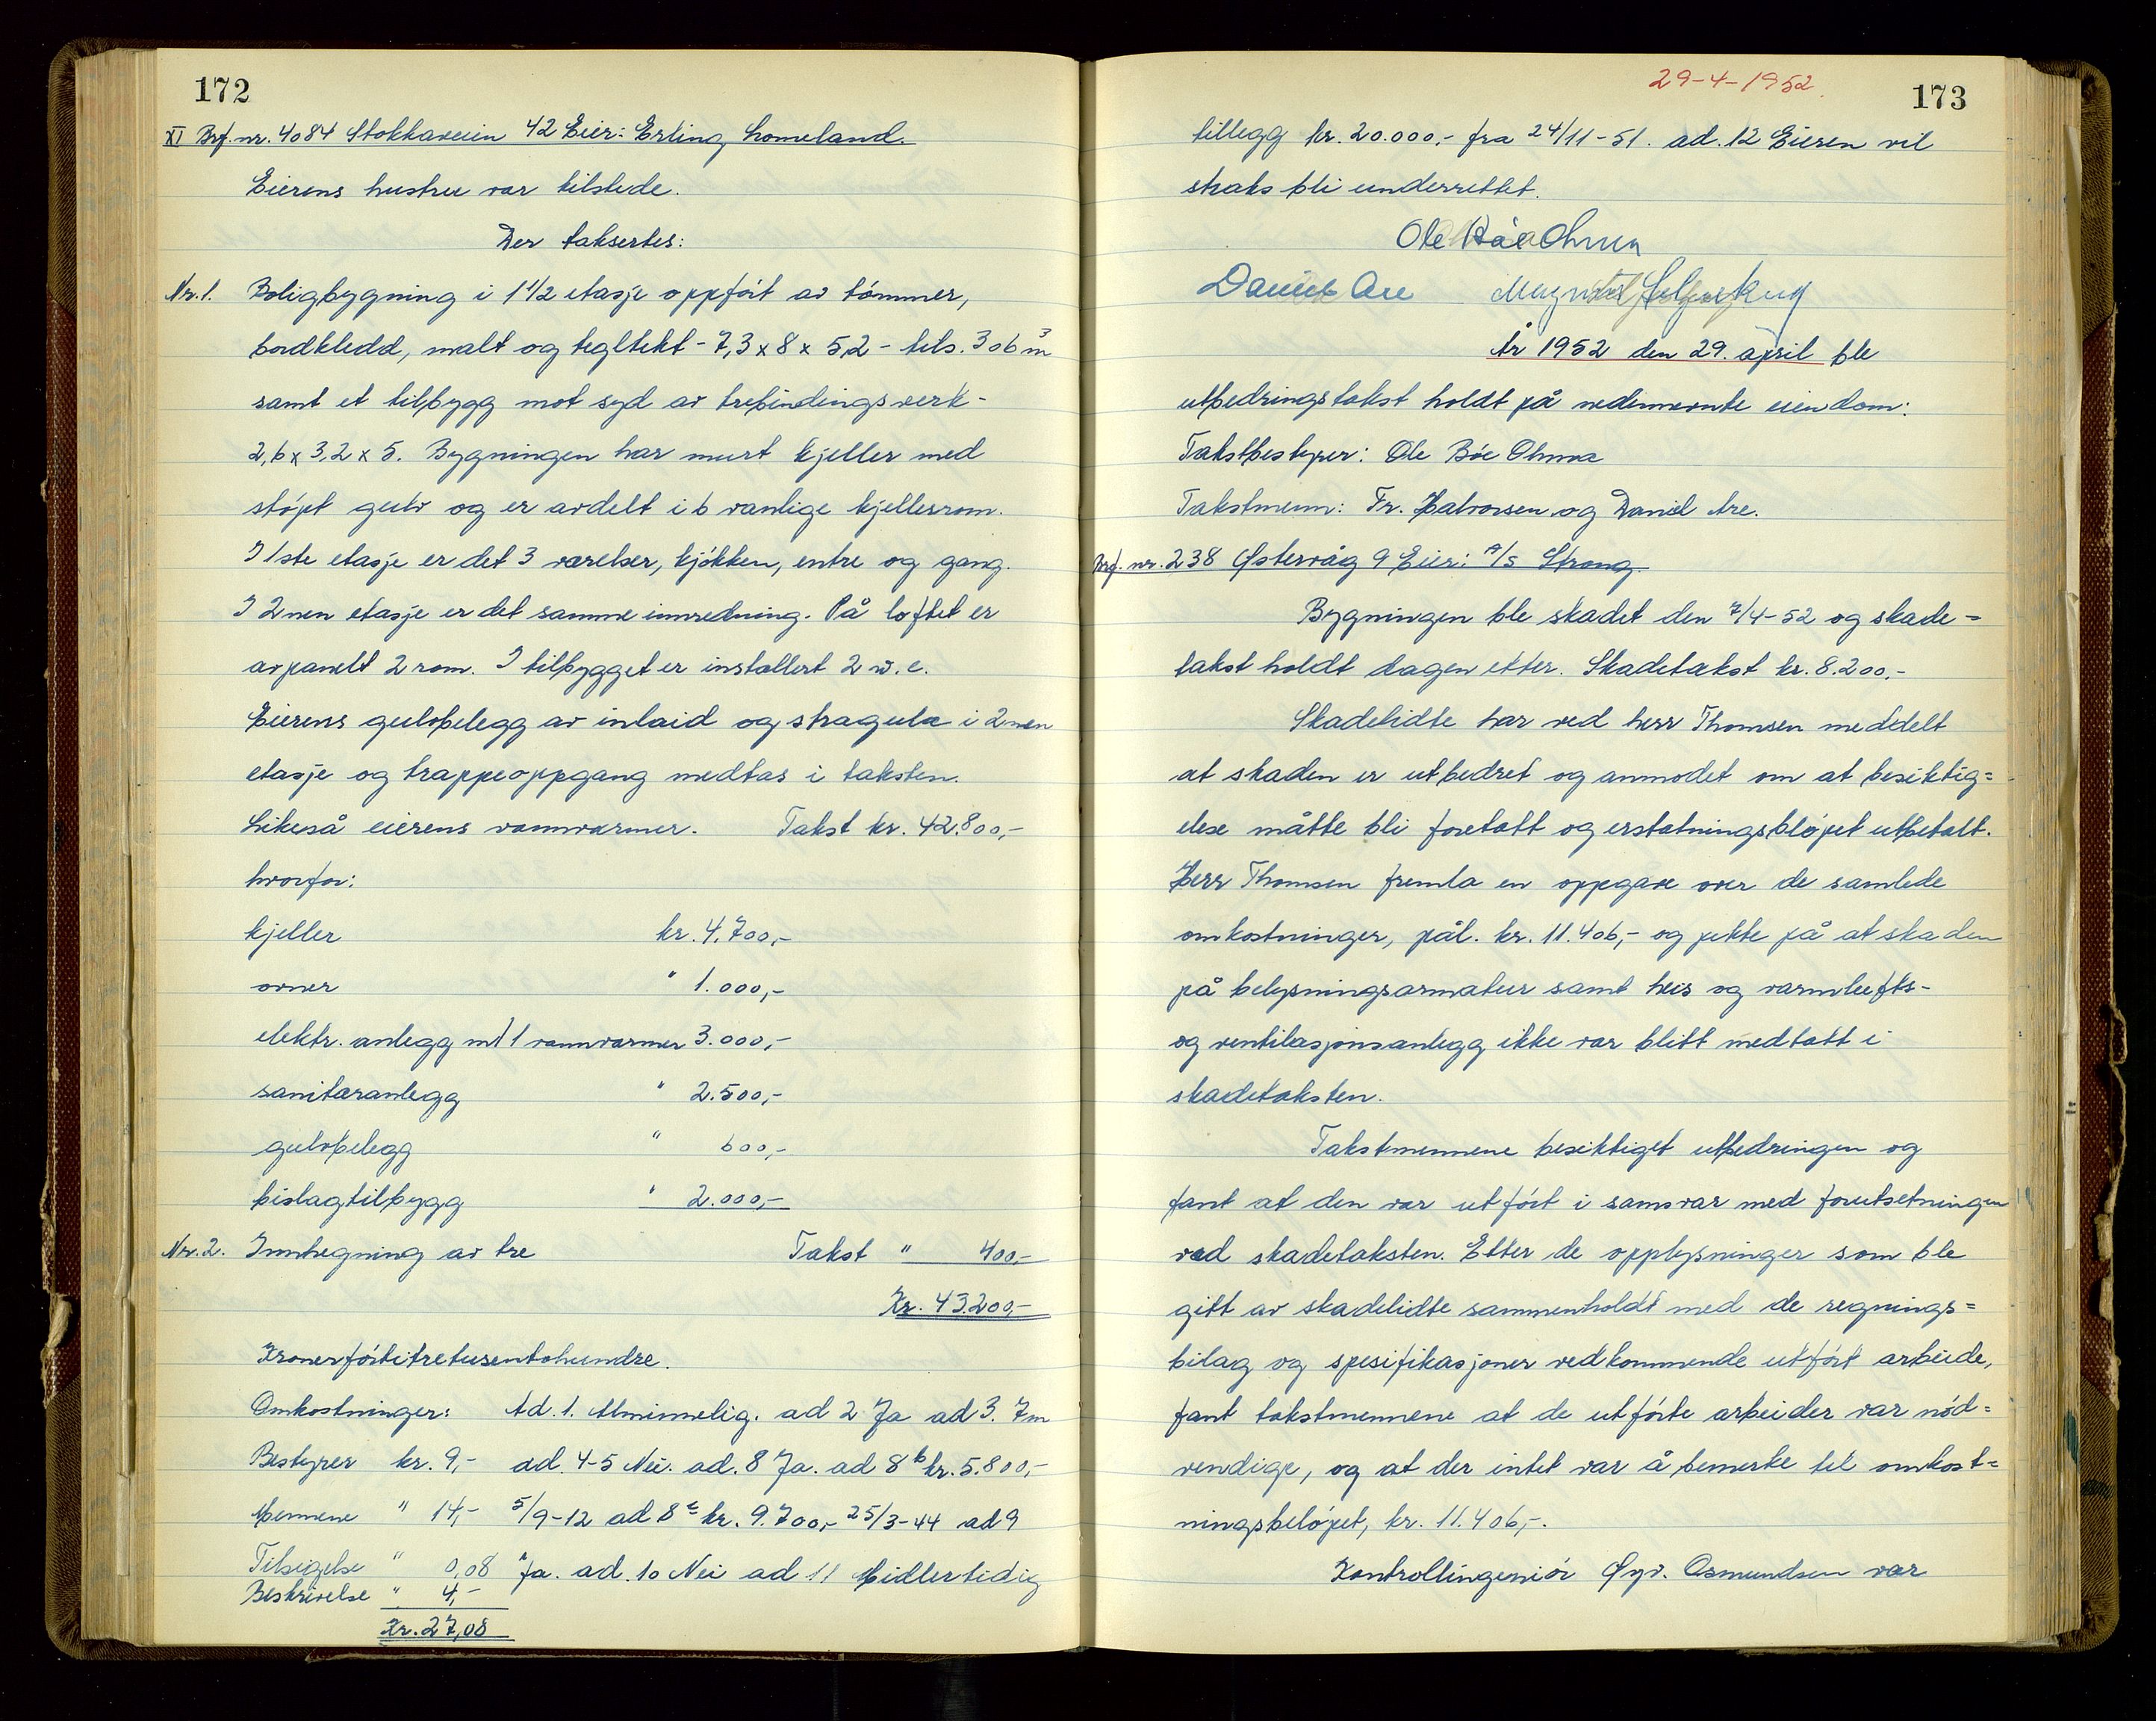 172
XI Brf. nr. 4084 Stokkaveien 42 Eier: Erling Lomeland.
Eierens hustru var tilstede.
Der taksertes:
Nr. 1. Boligbygning i 1 1/2 etasje oppført av tømmer,
bordkledd, malt og tegltekt - 7,3 x 8 x 5,2 - tils. 306 m³
samt et tilbygg mot syd av trebindingsverk -
2,6 x 3,2 x 5. Bygningen har murt kjeller med
støpt gulv og er avdelt i 6 vanlige kjellerrom.
I 1ste etasje er det 3 værelser, kjøkken, entre og gang.
I 2nen etasje er det samme innredning. På loftet er
avpanelt 2 rom. I tilbygget er installert 2 w.c.
Eierens gulvbelegg av inlaid og stragula i 2nen
etasje og trappeoppgang medtas i taksten.
Likeså eierens vannvarmer. Takst kr. 42.800,-
hvorfor:
kjeller kr. 4.700,-
ovner " 1.000,-
elektr. anlegg m/ 1 vannvarmer 3.000,-
sanitæranlegg " 2.500,-
gulvbelegg " 600,-
bislagtilbygg " 2.000,-
Nr. 2. Innhegning av tre Takst " 400,-
Kr. 43.200,-
Kronerførtitretusentohundre.
Omkostninger: Ad. 1. Alminnelig. ad 2 Ja ad 3. 7m
Bestyrer kr. 9,- ad. 4-5 Nei. ad. 8 Ja. ad 8 b kr. 5.800,-
Mennene " 14,- 5/9-12 ad 8 c kr. 9.700,- 25/3-44 ad 9
Tilsigelse " 0,08 Ja. ad. 10 Nei ad 11 Midlertidig
Beskrivelse " 4,-
Kr. 27,08
29-4-1952.
173
tillegg kr. 20.000,- fra 24/11-51. ad. 12 Eieren vil
straks bli underrettet.
Ole Bøe Ohma
Daniel Are Magnus
År 1952 den 29. april ble
utbedringstakst holdt på nedennevnte eiendom:
Takstbestyrer: Ole Bøe Ohma
Takstmenn: Fr. Halvorsen og Daniel Are.
Brf. nr. 238 Østervåg 9 Eier: A/S Strong.
Bygningen ble skadet den 7/4-52 og skade=
takst holdt dagen etter. Skadetakst kr. 8.200,-
Skadelidte har ved herr Thomsen meddelt
at skaden er utbedret og anmodet om at besiktig=
else måtte bli foretatt og erstatningsbløpet utbetalt.
Herr Thomsen fremla en oppgave over de samlede
omkostninger, pål. kr. 11.406,- og pekte på at skaden
på belysningsarmatur samt heis og varmlufts-
og ventilasjonsanlegg ikke var blitt medtatt i
skadetaksten.
Takstmennene besiktiget utbedringen og
fant at den var utført i samsvar med forutsetningen
ved skadetaksten. Etter de opplysninger som ble
gitt av skadelidte sammenholdt med de regnings=
bilag og spesifikasjoner vedkommende utført arbeide,
fant takstmennene at de utførte arbeider var nød=
vendige, og at der intet var å bemerke til omkost=
ningsbeløpet, kr. 11.406,-.
Kontrollingeniør Øyv. Osmundsen var